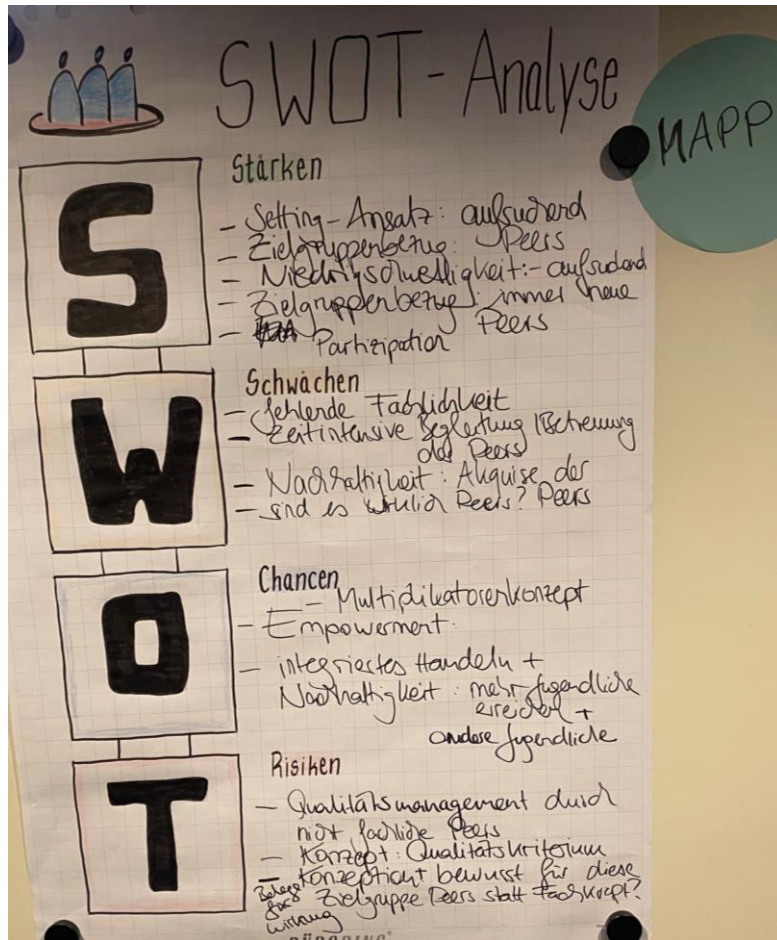 SWOT-Analyse
MAPP
S
Stärken
- Setting-Ansatz: aufsuchend
- Zielgruppenbezug: Peers
- Niedrigschwelligkeit:- aufsuchend
- Zielgruppenbezug: immer neue
Peers
- Partizipation
W
Schwächen
- fehlende Fachlichkeit
- Zeitintensive Begleitung/Betreuung
der Peers
- Nachhaltigkeit: Akquise der
Peers
- sind es wirklich Peers?
O
Chancen
- Multiplikatorenkonzept
- Empowerment:
- integriertes Handeln +
Nachhaltigkeit: mehr Jugendliche
erreichen +
andere Jugendliche
T
Risiken
- Qualitätsmanagement durch
nicht fachliche Peers
- Konzept: Qualitätskriterium
- Konzeption bewusst für diese
Zielgruppe Peers statt
für
Wirkung